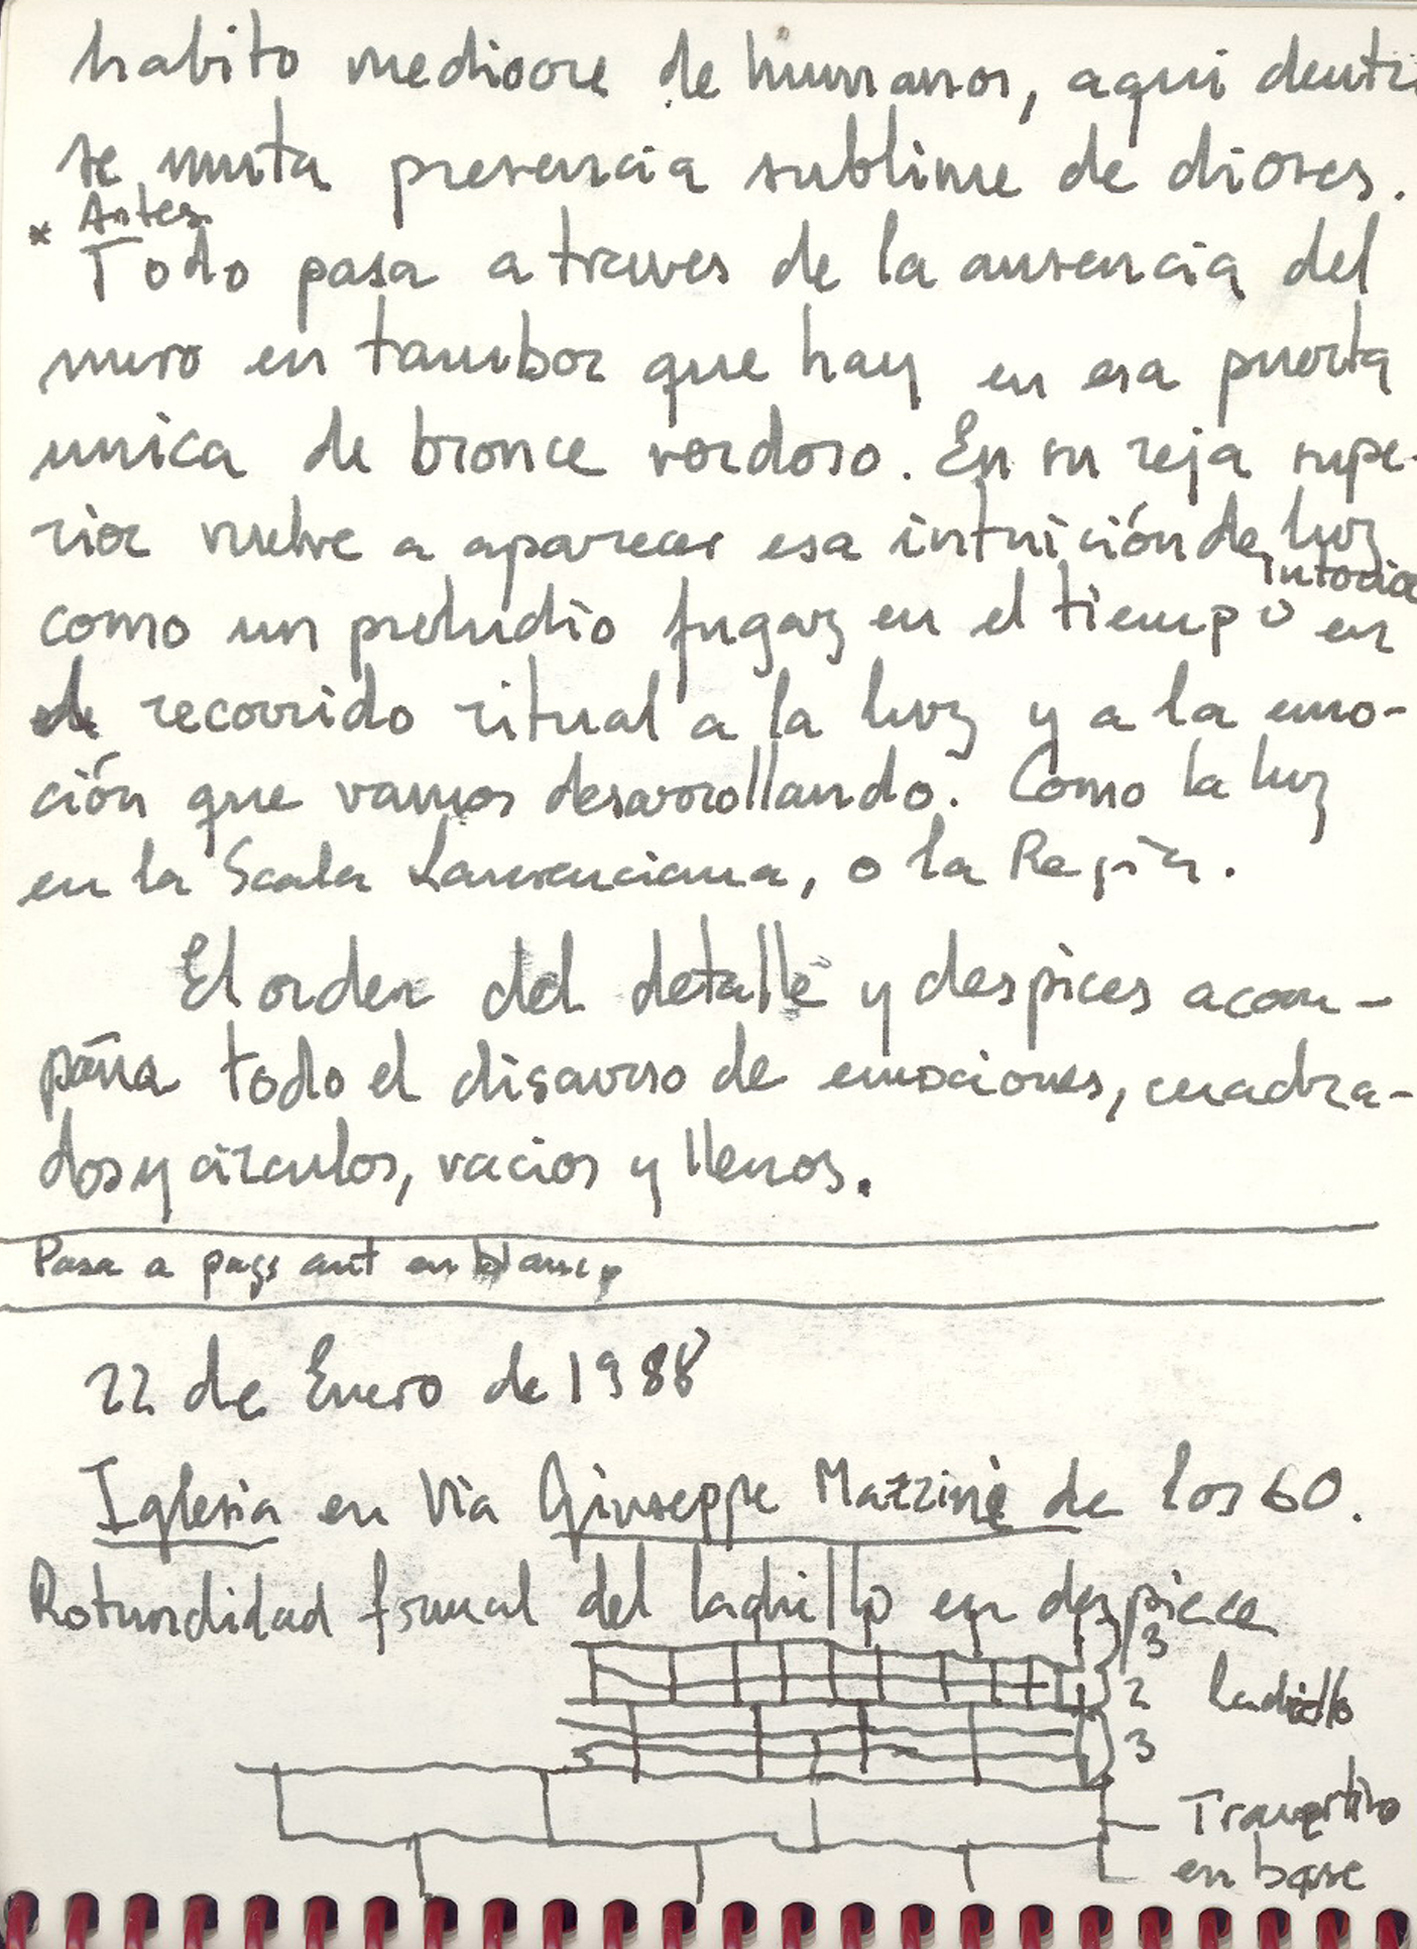 habito mediocre de humanos, aqui dentr
se muta presencia sublime de dioses.
* Antes
Todo pasa a traves de la ausencia del
muro en tambor que hay en esa puerta
unica de bronce verdoso. En su reja supe-
rior vuelve a aparecer esa intuición de luz
interior
como un preludio fugaz en el tiempo en
el recorrido ritual a la luz y a la emo-
ción que vamos desarrollando. Como la luz
en la Scala Laurenciana, o la Regia.
El orden del detalle y despieces acom-
paña todo el discurso de emociones, cuadra-
dos y circulos, vacios y llenos.
Pasa a pags ant en blanco
22 de Enero de 1988
Iglesia en Via Giuseppe Mazzini de los 60.
Rotundidad formal del ladrillo en despiece
3
2 ladrillo
3
Travertino
en base